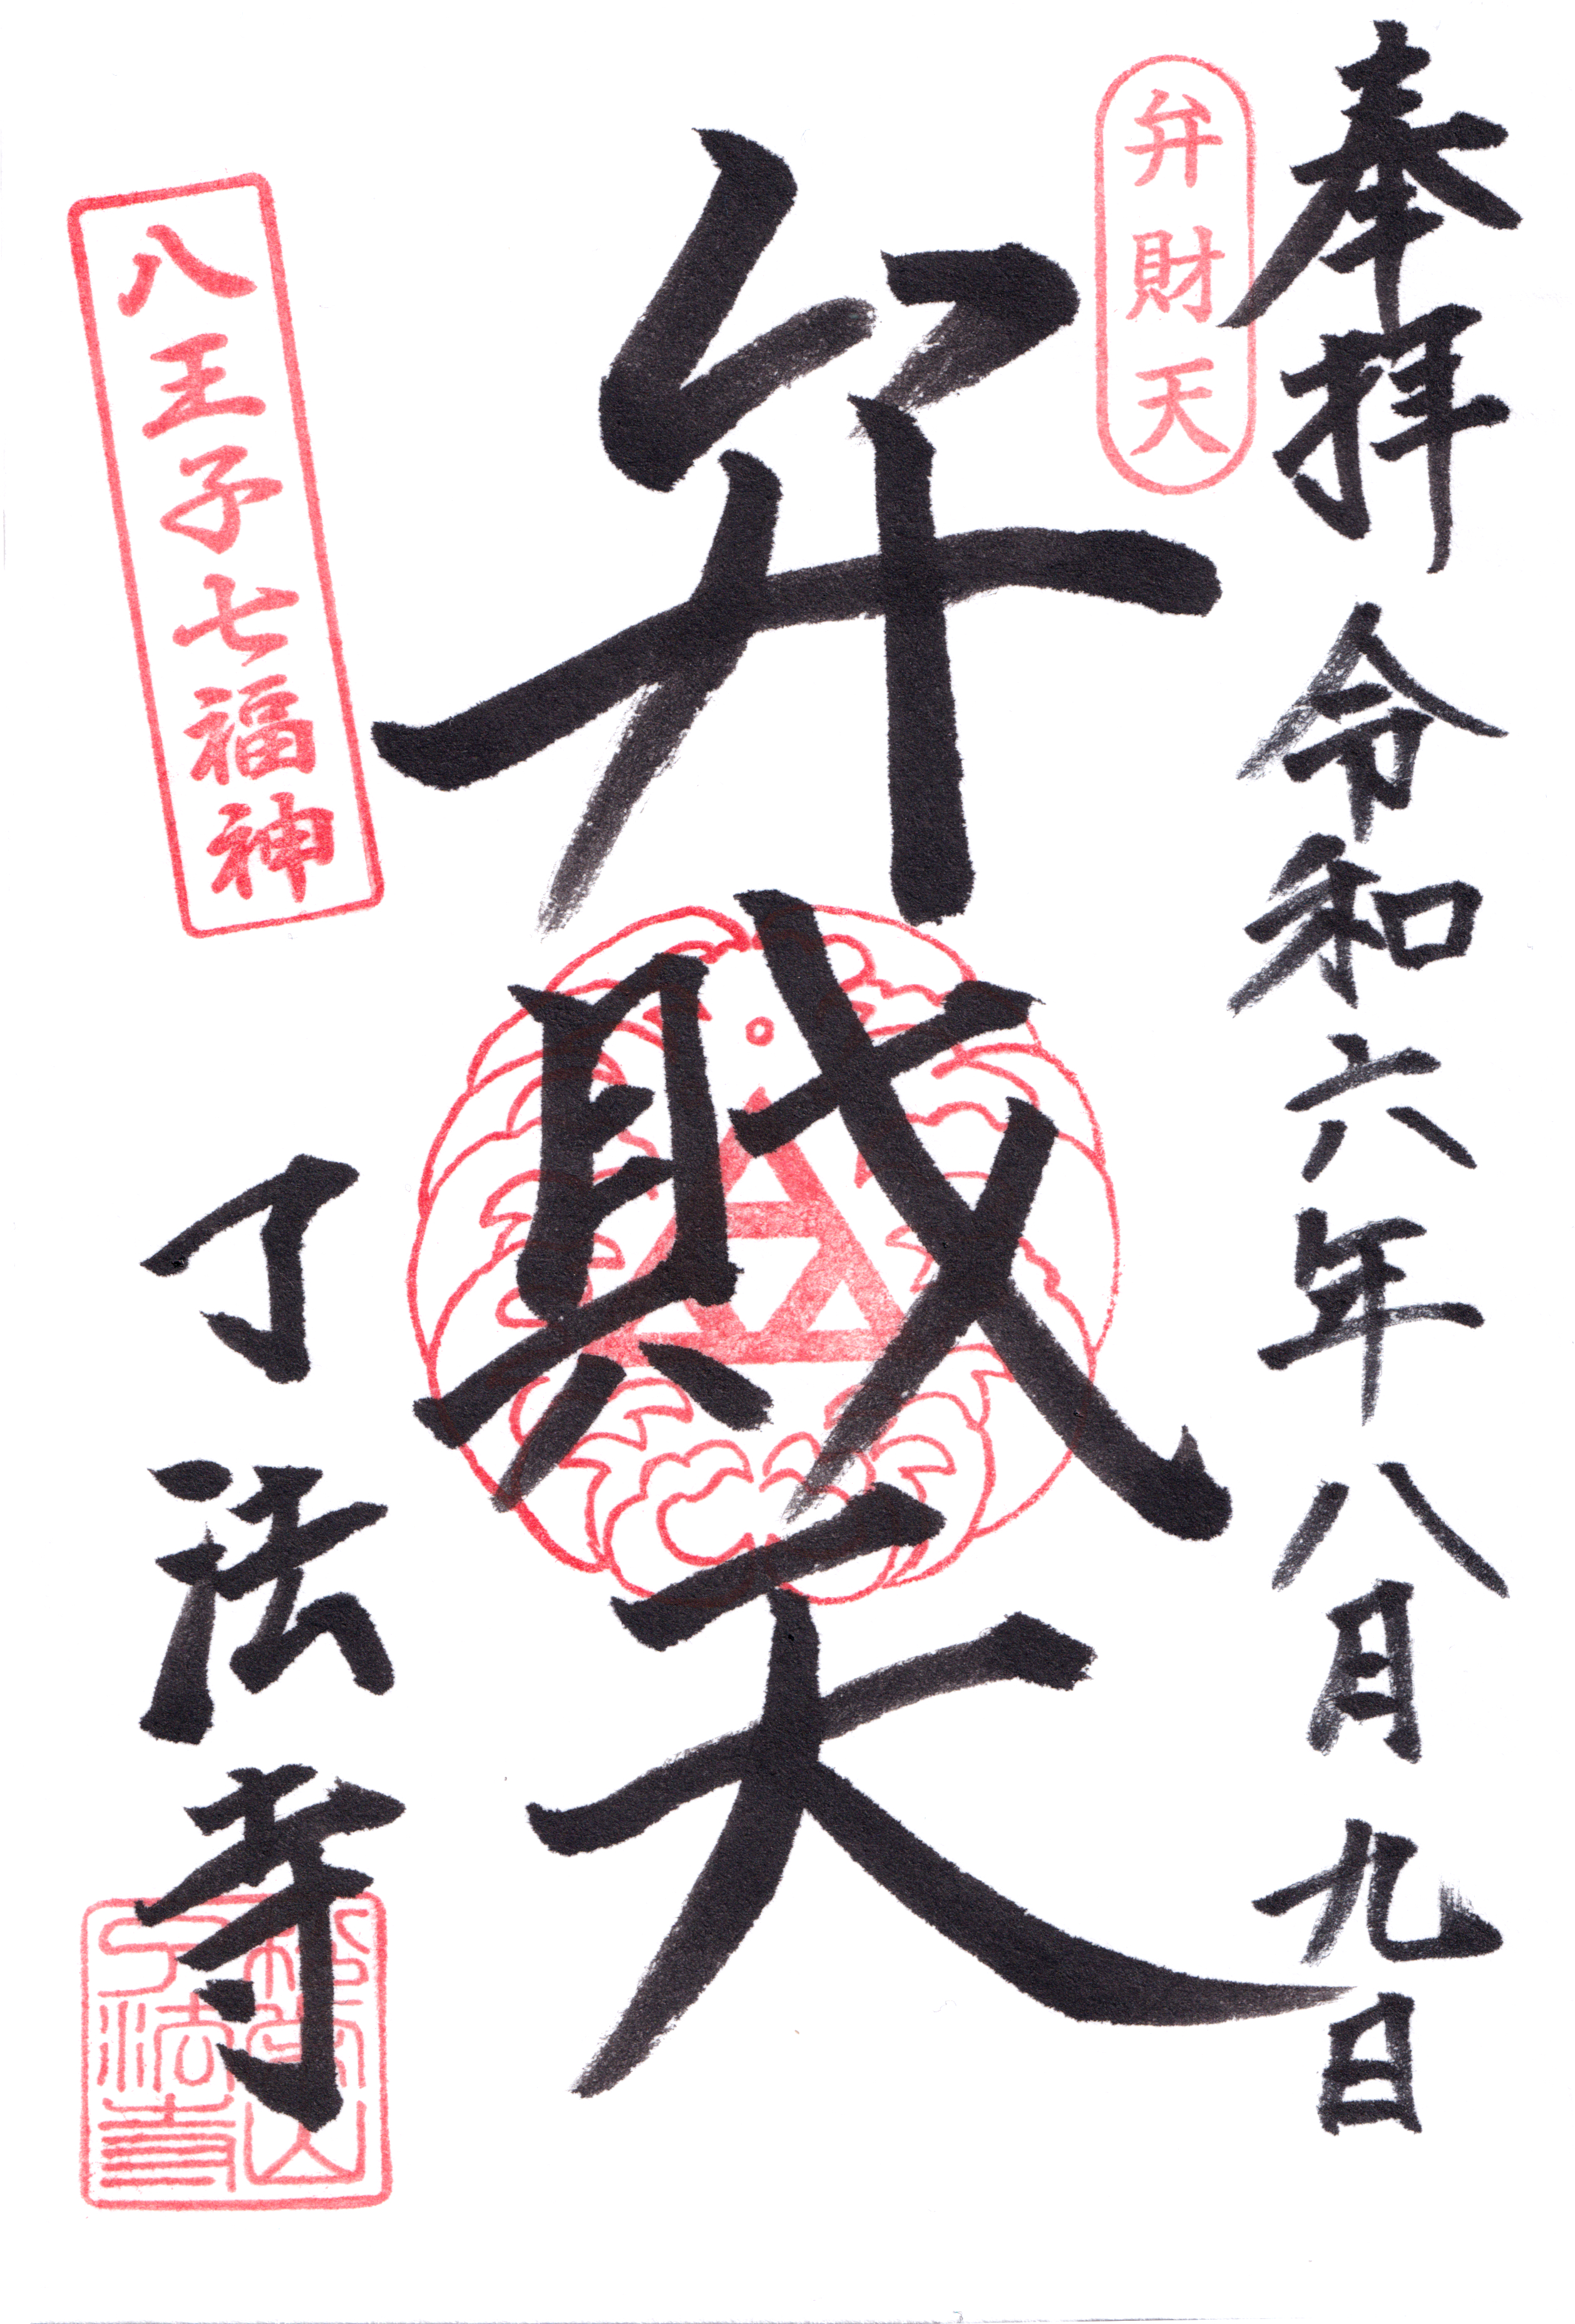 奉拝 令和六年八月九日
弁財天
弁財天
八王子七福神
了法寺
了法寺